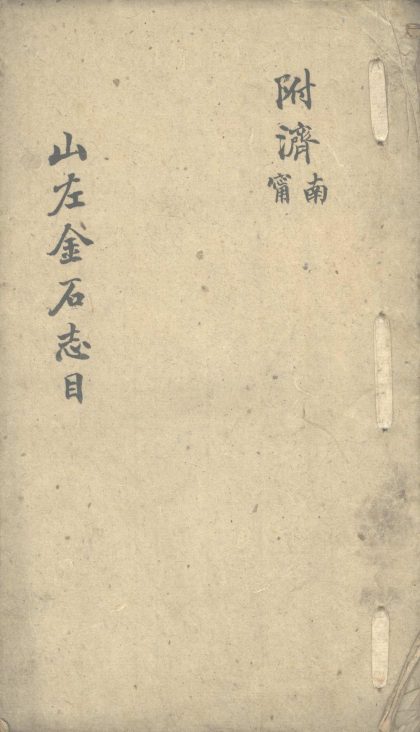 附濟南甯
山左金石志目